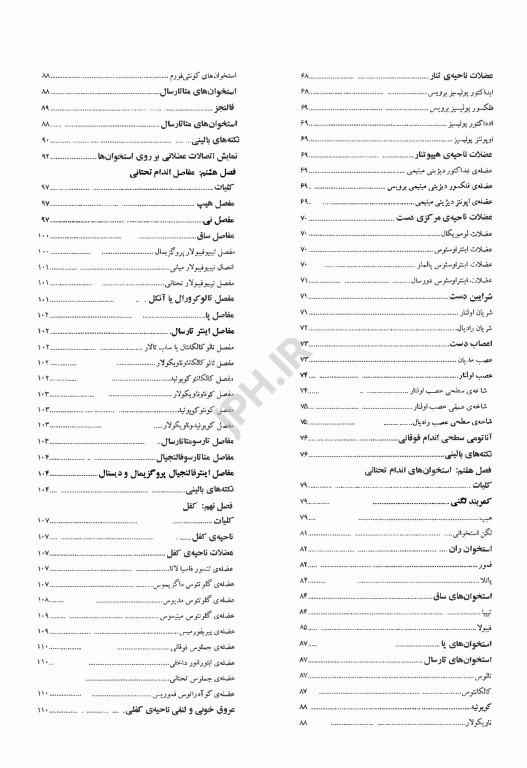 عضلات ناحیه‌ی تنار ۶۸
ابداکتور پولیسیز برویس ۶۸
فلکسور پولیسیز برویس ۶۹
ادداکتور پولیسیز ۶۹
اوپوننز پولیسیز ۶۹
عضلات ناحیه‌ی هیپوتنار ۶۹
عضله‌ی ابداکتور دیژیتی مینیمی ۶۹
عضله‌ی فلکسور دیژیتی مینیمی برویس ۶۹
عضله‌ی اپوننز دیژیتی مینیمی ۶۹
عضلات ناحیه‌ی مرکزی دست ۷۰
عضلات لومبریکال ۷۰
عضلات اینتراوسئوس ۷۰
عضلات اینتراوسئوس پالمار ۷۰
عضلات اینتراوسئوس دورسال ۷۱
شرایین دست ۷۱
شریان اولنار ۷۱
شریان رادیال ۷۲
اعصاب دست ۷۳
عصب مدیان ۷۳
عصب اولنار ۷۴
شاخه‌ی سطحی عصب اولنار ۷۴
شاخه‌ی عمقی عصب اولنار ۷۵
شاخه‌ی سطحی عصب رادیال ۷۵
آناتومی سطحی اندام فوقانی ۷۶
نکته‌های بالینی ۷۶
فصل هفتم: استخوان‌های اندام تحتانی
کلیات ۷۹
کمربند لگنی ۷۹
هیپ ۷۹
لگن استخوانی ۸۱
استخوان ران ۸۲
فمور ۸۲
پاتلا ۸۴
استخوان‌های ساق ۸۴
تیبیا ۸۴
فیبولا ۸۵
استخوان‌های پا ۸۷
استخوان‌های تارسال ۸۷
تالوس ۸۷
کالکانئوس ۸۷
کوبوئید ۸۸
ناویکولار ۸۸
استخوان‌های کونئی‌فورم ۸۸
استخوان‌های متاتارسال ۸۸
فالنجز ۸۹
استخوان‌های متاتارسال ۸۸
نکته‌های بالینی ۹۰
نمایش اتصالات عضلانی بر روی استخوان‌ها ۹۲
فصل هشتم: مفاصل اندام تحتانی
کلیات ۹۷
مفصل هیپ ۹۷
مفصل نی ۹۷
مفاصل ساق ۱۰۰
مفصل تیبیوفیبولار پروگزیمال ۱۰۰
اتصال تیبیوفیبولار میانی ۱۰۱
مفصل تیبیوفیبولار تحتانی ۱۰۱
مفصل تالوکرورال یا آنکل ۱۰۱
مفاصل پا ۱۰۲
مفاصل اینتر تارسال ۱۰۲
مفصل تالو کالکانئال یا ساب تالار ۱۰۲
مفصل تالو کالکانئوناویکولار ۱۰۲
مفصل کالکانئو کوبوئید ۱۰۲
مفصل کونئوناویکولار ۱۰۳
مفصل کونئوکوبوئید ۱۰۳
مفصل کوبوئیدوناویکولار ۱۰۳
مفاصل تارسومتاتارسال ۱۰۳
مفاصل متاتارسوفالنجیال ۱۰۴
مفاصل اینترفالنجیال پروگزیمال و دیستال ۱۰۴
نکته‌های بالینی ۱۰۴
فصل نهم: کفل
کلیات ۱۰۷
ناحیه‌ی کفل ۱۰۷
عضلات ناحیه‌ی کفل ۱۰۷
عضله‌ی تنسور فاسیا لاتا ۱۰۷
عضله‌ی گلوتئوس ماگزیموس ۱۰۷
عضله‌ی گلوتئوس مدیوس ۱۰۸
عضله‌ی گلوتئوس مینیموس ۱۰۹
عضله‌ی پیریفورمیس ۱۰۹
عضله‌ی جملوس فوقانی ۱۱۰
عضله‌ی ابتوراتور داخلی ۱۱۰
عضله‌ی جملوس تحتانی
عضله‌ی کوآدراتوس فموریس ۱۱۰
عروق خونی و لنفی ناحیه‌ی کفلی ۱۱۰
JPH.IR